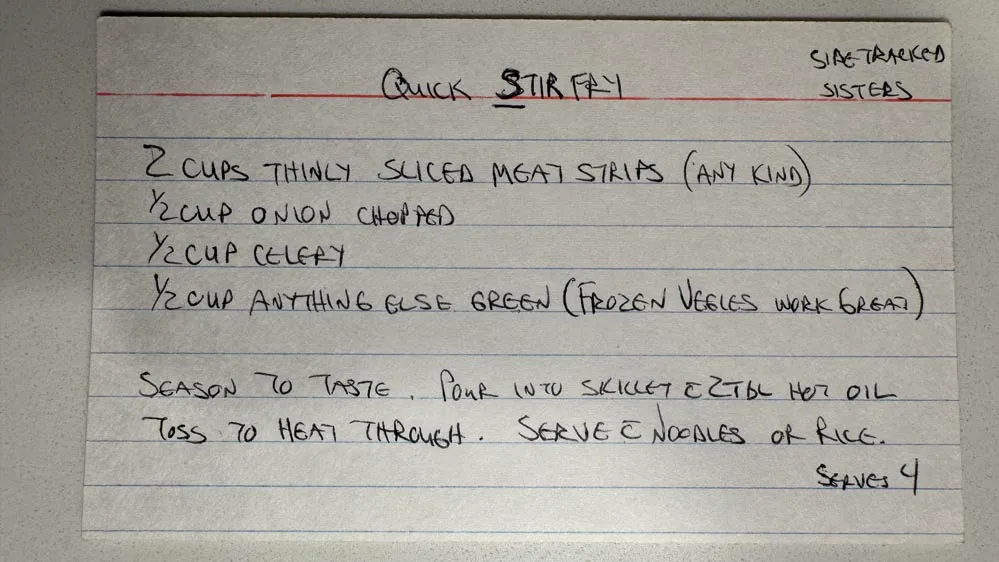 SIDETRACKED
SISTERS
QUICK STIR FRY
2 CUPS THINLY SLICED MEAT STRIPS (ANY KIND)
1/2 CUP ONION CHOPPED
1/2 CUP CELERY
1/2 CUP ANYTHING ELSE GREEN (FROZEN VEGGIES WORK GREAT)
SEASON TO TASTE. POUR INTO SKILLET c̄ 2 TBL HOT OIL
TOSS TO HEAT THROUGH. SERVE c̄ NOODLES OR RICE.
SERVES 4